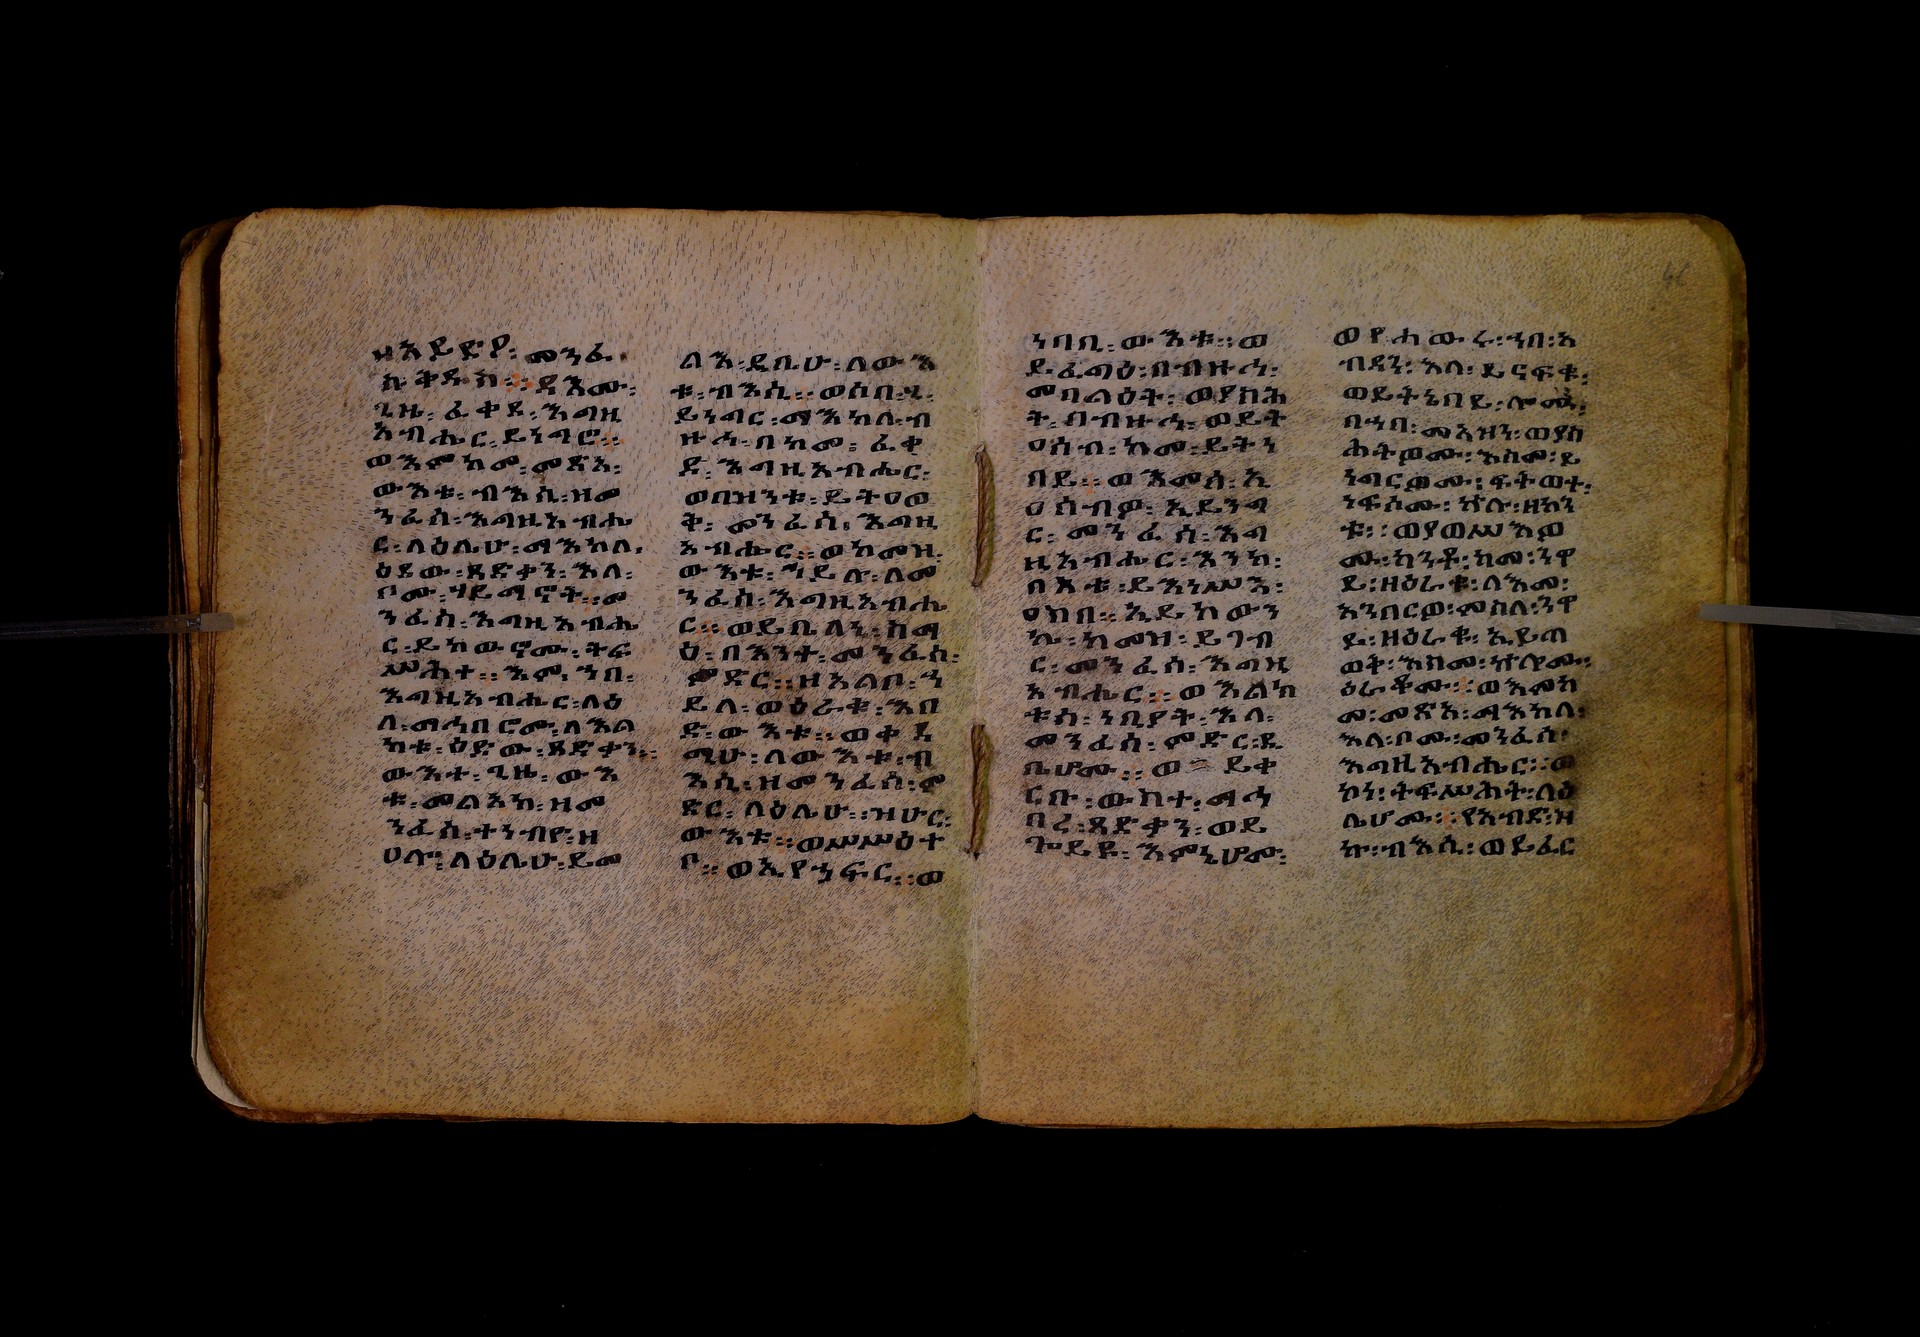 ዘእይድያ፡ መንፈ
ስ፡ ቅዱስ፡፡ ዳእሙ፡
ጊዜ፡ ፈቀደ፡ እግዚ
አብሔር፡ ይነግሮ፡፡
ወእምከመ፡ መጽአ፡
ውእቱ፡ ብእሲ፡ ዘመ
ንፈሰ፡ እግዚአብሔ
ር፡ ላዕሌሁ፡ ማእከለ፡
ዕደው፡ ጻድቃን፡ እለ፡
ቦሙ፡ ሃይማኖት፡፡ መ
ንፈሰ፡ እግዚአብሔ
ር፡ ይከውኖሙ፡ ትፍ
ሥሕተ፡፡ እም፡ ኀበ፡
እግዚአብሔር፡ ላዕ
ለ፡ ማኅበሮሙ፡ ለእል
ክቱ፡ ዕደው፡ ጻድቃን፡፡
ውእተ፡ ጊዜ፡ ውእ
ቱ፡ መልአክ፡ ዘመ
ንፈሰ፡ ተነብዮ፡ ዘ
ሀሎ፡ ላዕሌሁ፡ ይመ
ልእ፡ ዲቤሁ፡ ለውእ
ቱ፡ ብእሲ፡፡ ወሶበ፡ ሂ፡
ይነግር፡ ማእከለ፡ ብ
ዙኅ፡ በከመ፡ ፈቀ
ደ፡ እግዚአብሔር፡
ወበዝንቱ፡ ይትዐወ
ቅ፡ መንፈሰ፡ እግዚ
አብሔር፡፡ ወከመዝ፡
ውእቱ፡ ኀይሉ፡ ለመ
ንፈሰ፡ እግዚአብሔ
ር፡፡ ወይቤለኒ፡ ስማ
ዕ፡ በእንተ፡ መንፈሰ፡
ምድር፡፡ ዘአልቦ፡ ኀ
ይለ፡ ወዕራቁ፡ እበ
ድ፡ ውእቱ፡፡ ወቀዳ
ሚሁ፡ ለውእቱ፡ ብ
እሲ፡ ዘመንፈሰ፡ ም
ድር፡ ላዕሌሁ፡ ዝሁር፡
ውእቱ፡፡ ወሥሡዕተ
ቦ፡፡ ወኢየኀፍር፡፡ ወ
ነባቢ፡ ውእቱ፡፡ ወ
ይፈግዕ፡ በብዙኅ፡
መባልዕት፡ ወያስሕ
ት፡ በብዙኅ፡ ወይት
ዐሰብ፡ ከመ፡ ይትነ
በይ፡፡ ወእመሰ፡ ኢ
ዐሰብዎ፡ ኢይነግ
ር፡ መንፈሰ፡ እግ
ዚአብሔር፡ እንከ፡
በእቱ፡ ይእነሥእ፡
ዐስበ፡፡ ኢይከውን
ኬ፡ ከመዝ፡ ይገብ
ር፡ መንፈሰ፡ እግዚ
አብሔር፡፡ ወእልክ
ቱሰ፡ ነቢያት፡ እለ፡
መንፈሰ፡ ምድር፡ ዲ
ቤሆሙ፡፡ ወ ይቀ
ርቡ፡ ውስተ፡ ማኅ
በረ፡ ጻድቃን፡ ወይ
ጐይዩ፡ እምኔሆሙ፡
ወየሐውሩ፡ ኀበ፡ አ
ብዳን፡ እለ፡ ይናፍቁ፡
ወይትኔበይ፡ ሎሙ፡
በኀበ፡ መአዝን፡ ወያስ
ሕትወሙ፡ እስመ፡ ይ
ነግርወሙ፡ ፍትወተ፡
ነፍሶሙ፡ ኵሉ፡ ዘከን
ቱ፡፡ ወያወሥእወ
ሙ፡ ከንቶ፡ ከመ፡ ንዋ
ይ፡ ዘዕራቁ፡ ለእመ፡
አንበርወ፡ ምስለ፡ ንዋ
ይ፡ ዘዕራቁ፡ ኢይጠ
ወቅ፡ እስመ፡ ኵሎሙ፡
ዕራቆሙ፡፡ ወእመከ
መ፡ መጽአ፡ ማእከለ፡
እለ፡ ቦሙ፡ መንፈሰ፡
እግዚአብሔር፡፡ ወ
ኮነ፡ ትፍሥሕት፡ ላዕ
ሌሆሙ፡፡ የአብድ፡ ዝ
ኵ፡ ብእሲ፡ ወይፈር